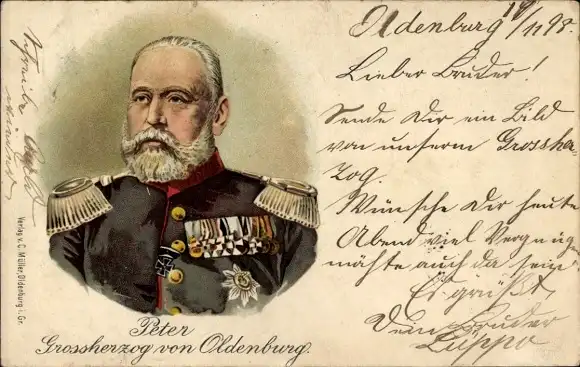 Oldenburg 19/11 98.
Lieber Bruder!
Sende Dir ein Bild
von unserm Grossher-
zog.
Wünsche Dir heute
Abend viel Vergnüg
möchte auch da sein
Es grüßt
Dein Bruder
Luppo
Schreibe bald
wieder
Verlag v. C. Müller, Oldenburg i. Gr.
Peter
Grossherzog von Oldenburg.